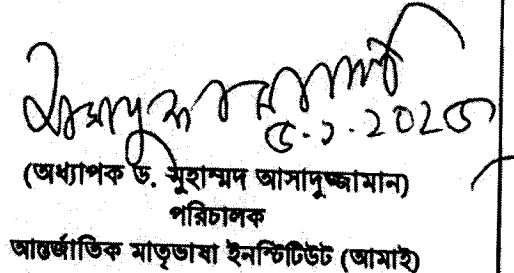 (অধ্যাপক ড. মুহাম্মদ আসাদুজ্জামান)
পরিচালক
আন্তর্জাতিক মাতৃভাষা ইনস্টিটিউট (আমাই)